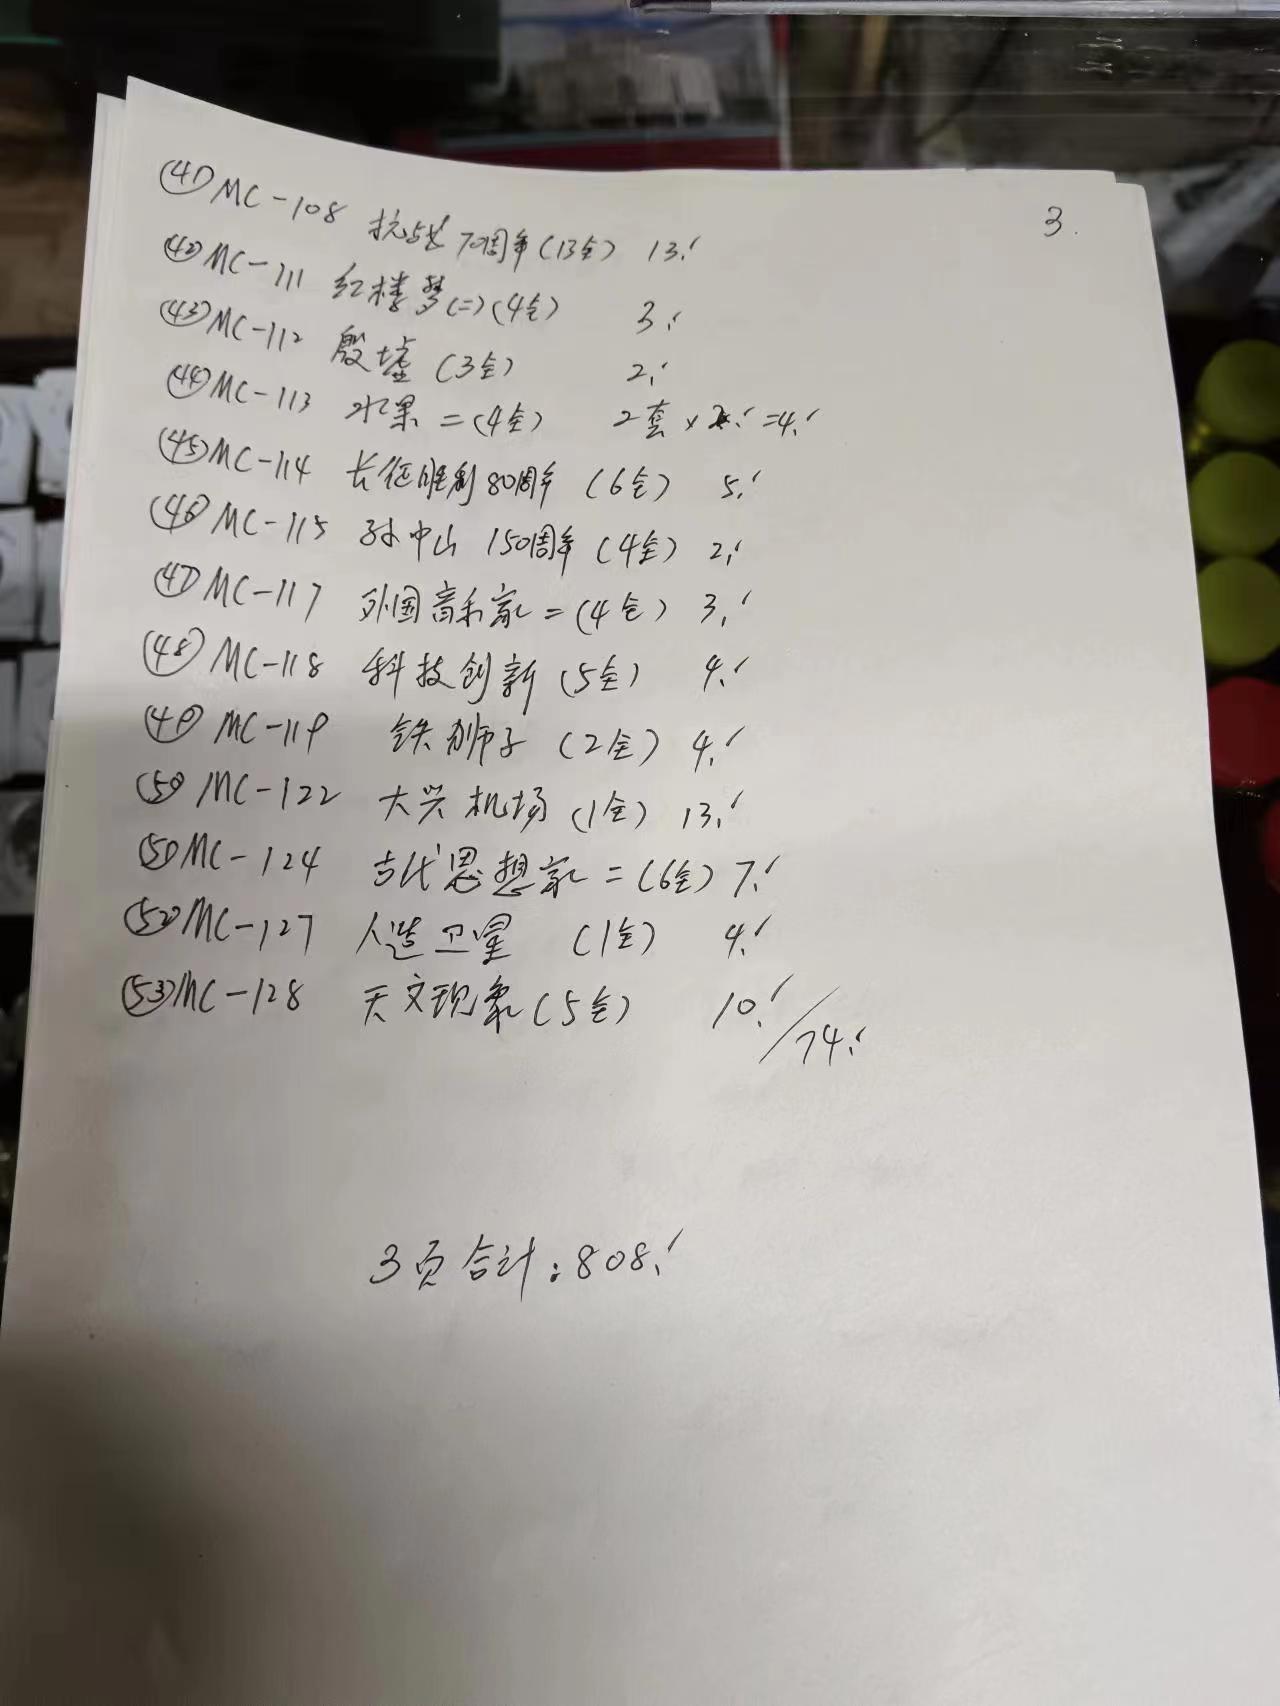 3.
(41) MC-108 抗战70周年(13全) 13.
(42) MC-111 红楼梦(二)(4全) 3.
(43) MC-112 殷墟(3全) 2.
(44) MC-113 水果二(4全) 2套×2.=4.
(45) MC-114 长征胜利80周年(6全) 5.
(46) MC-115 孙中山150周年(4全) 2.
(47) MC-117 外国音乐家二(4全) 3.
(48) MC-118 科技创新(5全) 4.
(49) MC-119 铁狮子(2全) 4.
(50) MC-122 大兴机场(1全) 13.
(51) MC-124 古代思想家二(6全) 7.
(52) MC-127 人造卫星(1全) 4.
(53) MC-128 天文现象(5全) 10.
/74.
3页合计:808.